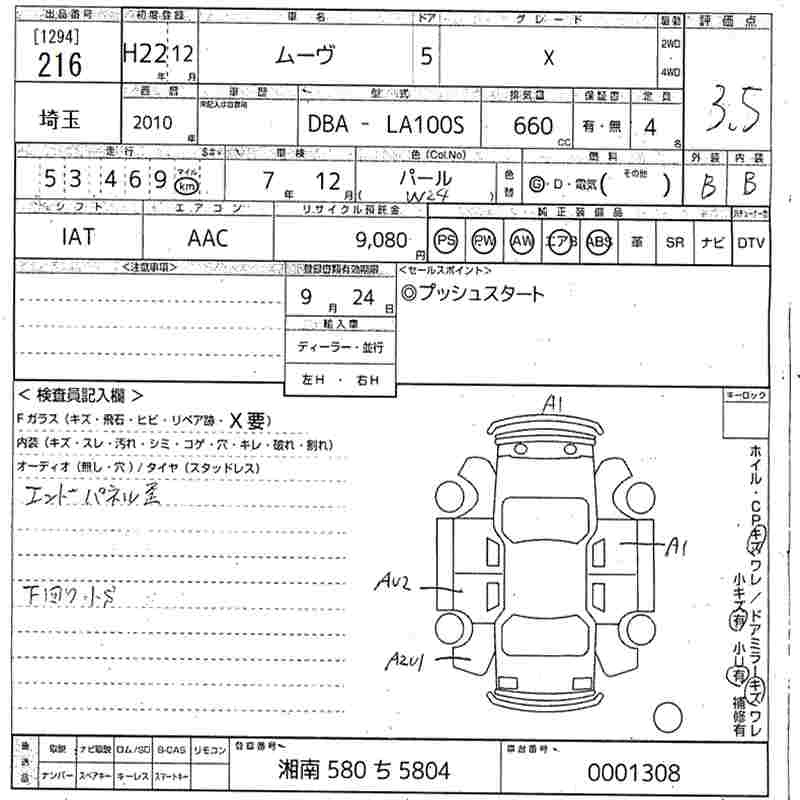 出品番号 初度登録 車名 ドア グレード 駆動 評価点
[1294]
216 H22年 12月 ムーヴ 5 X 2WD・4WD 3.5
西暦 車歴 型式 排気量 保証書 定員
埼玉 2010年 DBA - LA100S 660cc 有・無 4名
走行 車検 色(Col.No) 燃料 外装 内装
53469 マイル km 7年 12月 パール (W24) 色替 G・D・電気 (その他) B B
シフト エアコン リサイクル預託金 純正装備品
IAT AAC 9,080円 PS PW AW エアB ABS 革 SR ナビ DTV
<注意事項> 登録書類有効期限 <セールスポイント>
9月 24日 ◎プッシュスタート
輸入車
ディーラー・並行
左H ・ 右H
< 検査員記入欄 > キーロック
Fガラス (キズ・飛石・ヒビ・リペア跡・X要)
内装 (キズ・スレ・汚れ・シミ・コゲ・穴・キレ・破れ・割れ)
オーディオ (無し・穴) / タイヤ (スタッドレス)
エンドパネル歪
下回り小S
A1
A1
AU2
A2U1
ホイル・CPキズワレ / ドアミラーキズワレ
小キズ有 小U有 補修有
後送品 取説 ナビ取説 ロム/SD B-CAS リモコン 登録番号 車台番号
ナンバー スペアキー キーレス スマートキー 湘南 580 ち 5804 0001308